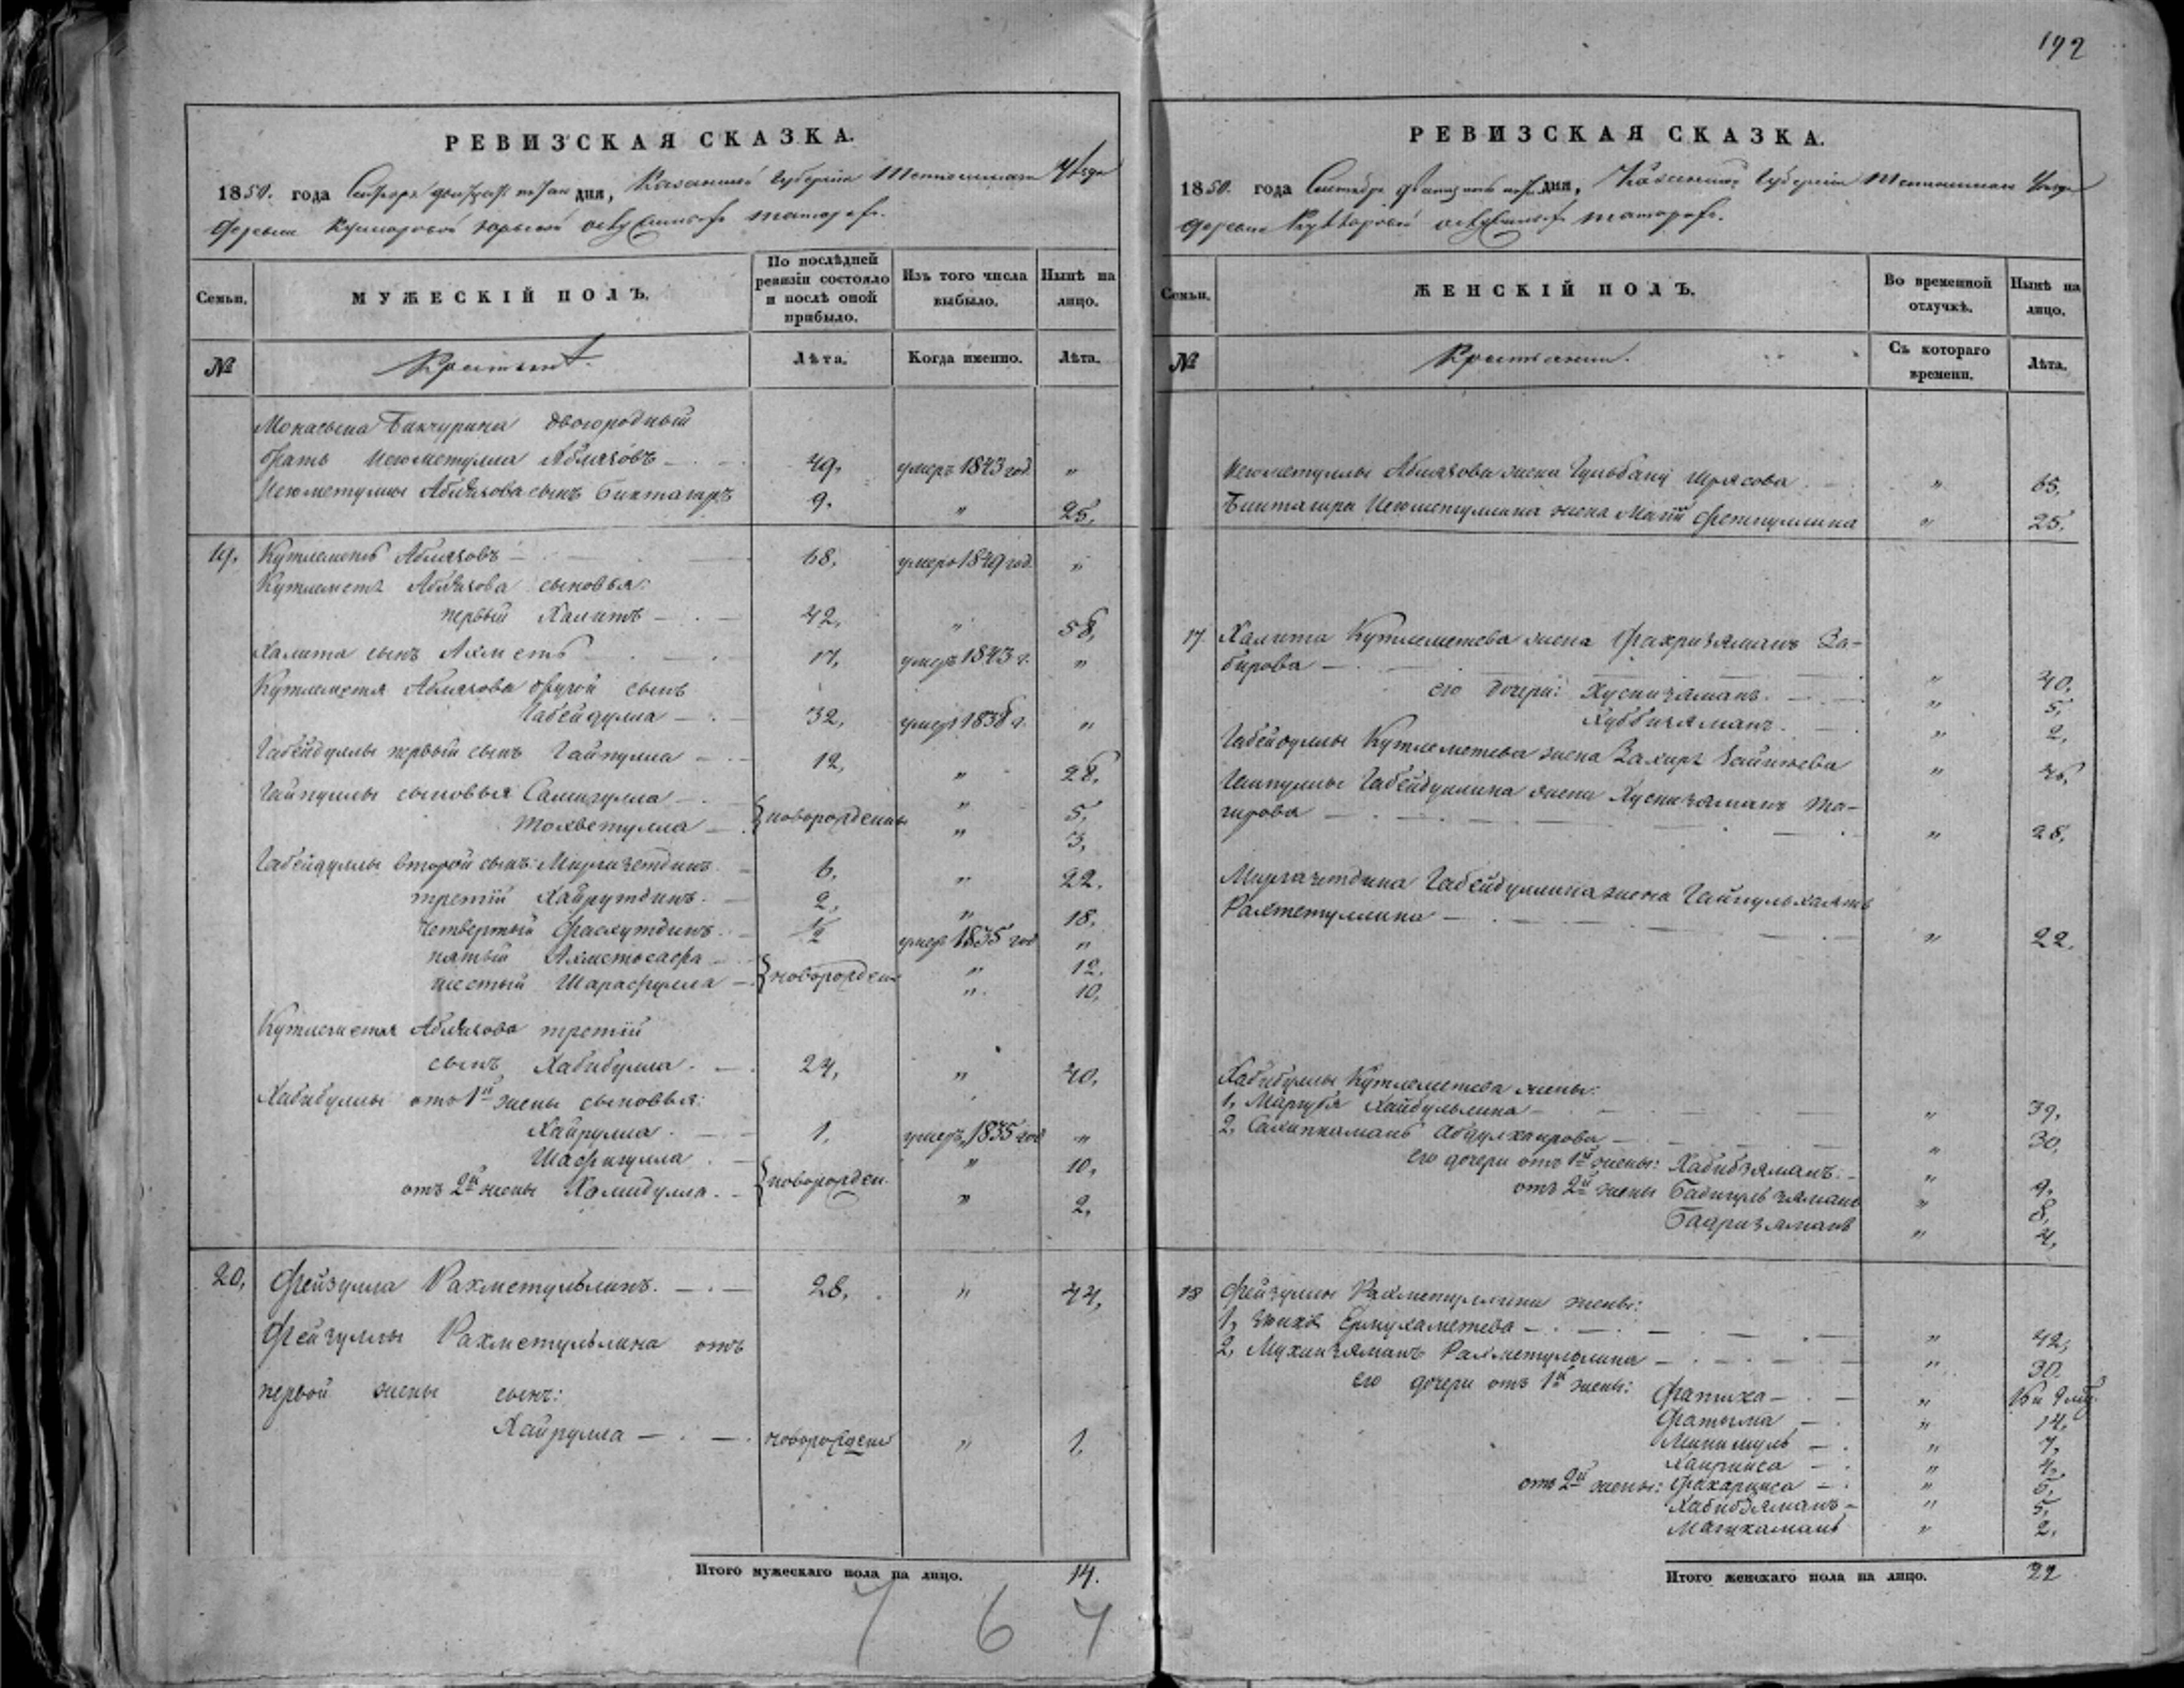 192
РЕВИЗСКАЯ СКАЗКА.
1850. года Сентября двадцать дня, Казанской Губернии Тетюшскаго Уезда
деревни татаръ.
Семьи.
МУЖЕСКІЙ ПОЛЪ.
По послѣдней ревизіи состояло и послѣ оной прибыло.
Изъ того числа выбыло.
Нынѣ на лицо.
№
Лѣта.
Когда именно.
Лѣта.
Бикчурина двоюродный
братъ Негометулла Абляховъ 49, умеръ 1843 год "
Негометуллы Абляхова сынъ Биктагиръ 9, " 25,
19, Кутлеметь Абляховъ 68, умеръ 1849 год. "
Кутлеметя Абляхова сыновья:
первый Халитъ 42, " 58,
Халита сынъ Ахметь 17, умеръ 1843 г. "
Кутлеметя Абляхова другой сынъ
Габейдулла 32, умеръ 1838 г. "
Габейдуллы первый сынъ Гайнулла 12, " 28,
Гайнуллы сыновья Самигулла " 5,
новорожденны
Тохветулла " 3,
Габейдуллы второй сынъ: Миргазетдинъ 6, " 22.
третій Хайрутдинъ. 2, " 18.
четвертый Фасхутдинъ. 1/2 умеръ 1835 год "
пятый Ахметсафа " 12,
новорожден
шестый Шарафулла " 10,
Кутлеметя Абляхова третій
сынъ Хабибулла. 24, " 40,
Хабибуллы отъ 1й жены сыновья:
Хайрулла. 1, умеръ 1835 год "
Шафигулла " 10,
новорожден.
отъ 2й жены Хамидулла. " 2,
20, Фейзулла Рахметульлинъ. 28, " 44,
Фейзуллы Рахметульлина отъ
первой жены сынъ:
Хайрулла новорожден " 1,
Итого мужескаго пола на лицо. 14.
7 6 7
РЕВИЗСКАЯ СКАЗКА.
1850. года Сентября дня, Казанской Губерніи Тетюшскаго Уезда
деревни татаръ.
Семьи.
ЖЕНСКІЙ ПОЛЪ.
Во временной отлучкѣ.
Нынѣ на лицо.
№
Съ котораго времени.
Лѣта.
Негометуллы Абляхова жена Гульбану Илясова " 65,
Биктагира Негометуллина жена Фетхуллина " 25.
17. Халита Кутлеметева жена Фахризяманъ За-
бирова " 40,
его дочери: Хуснизяманъ. " 5,
Хуббизяманъ. " 2,
Габейдуллы Кутлеметева жена " 46,
Гайнуллы Габейдуллина жена Хуснизяманъ Та-
гирова " 28,
Миргазетдина Габейдуллина жена
Рахметуллина " 22.
Хабибуллы Кутлеметева жены:
1, Маргуба " 39,
2, Абдулхаирова " 30,
его дочери отъ 1й жены: Хабибзяманъ. " 9,
отъ 2й жены Бадигульзяманъ " 8,
Бадризяманъ " 4,
18 Фейзуллы Рахметуллина жены:
1, Ермухаметева " 42,
2, Рахметульлина " 30.
его дочери отъ 1й жены: Фатиха "
Фатыма " 14,
" 7,
" 4,
отъ 2й жены: " 6,
Хабибзяманъ " 5,
" 2,
Итого женскаго пола на лицо. 22